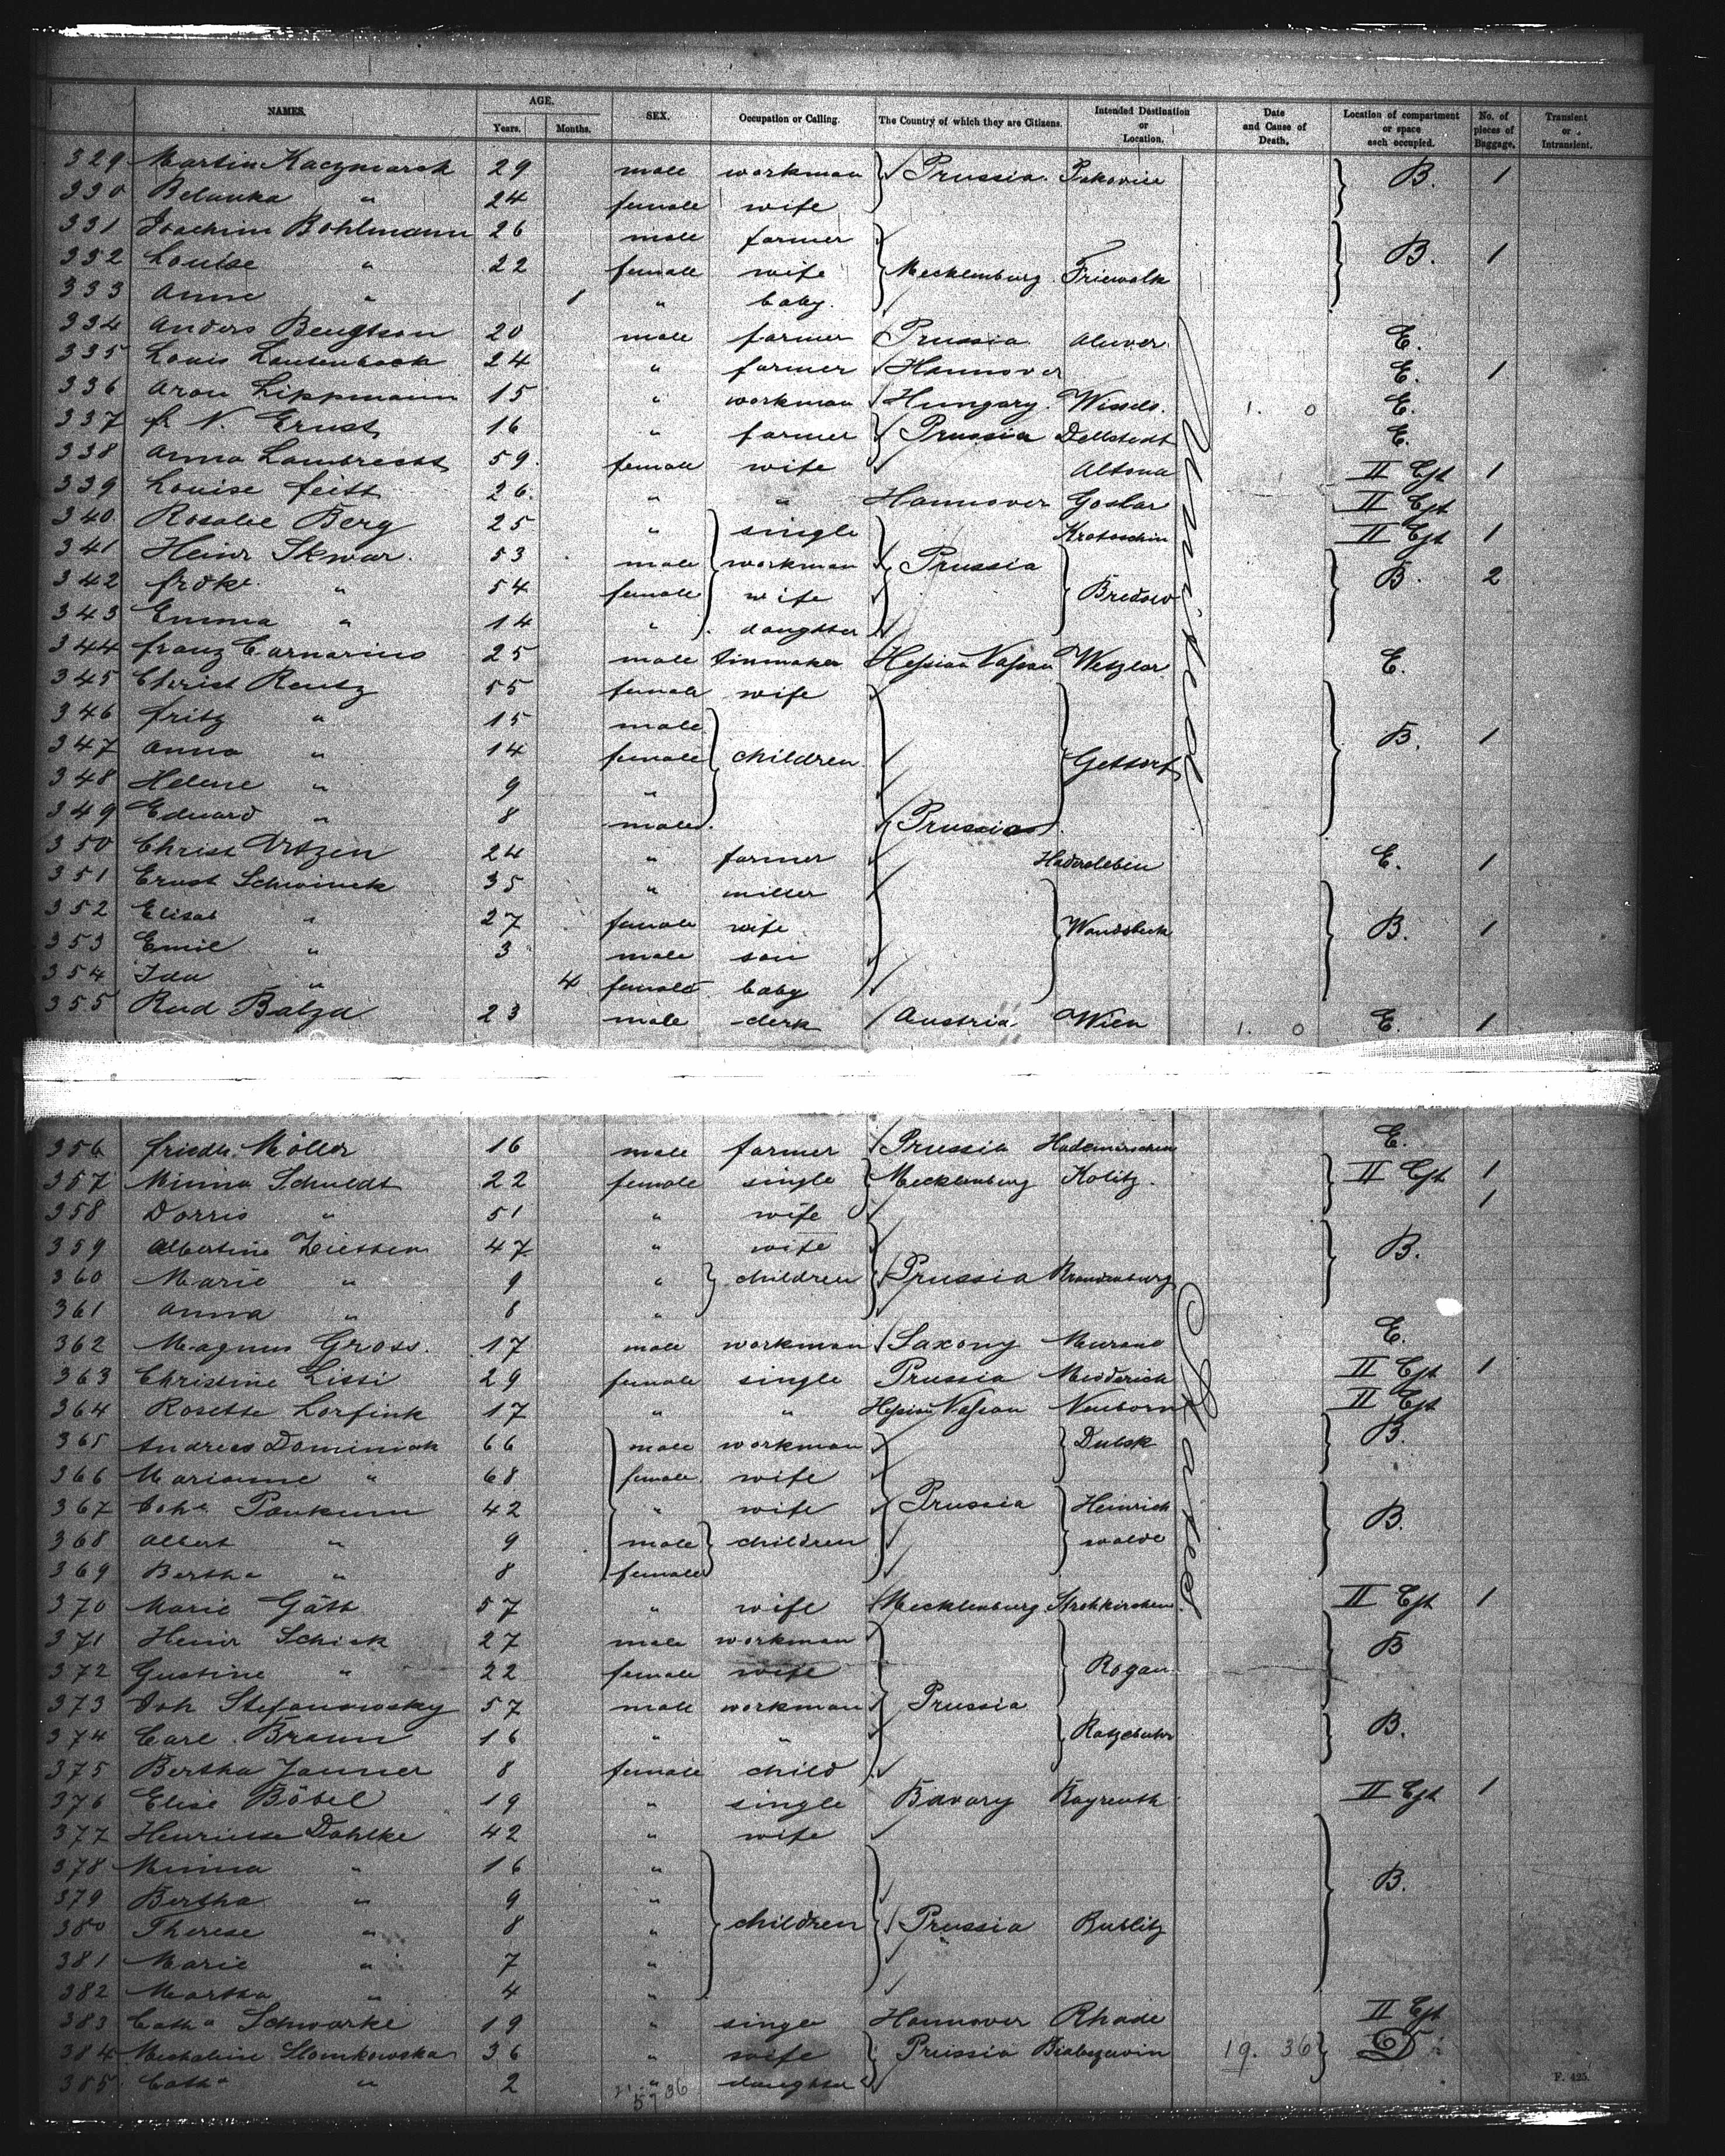 NAMES. AGE. Years. Months. SEX. Occupation or Calling. The Country of which they are Citizens. Intended Destination or Location. Date and Cause of Death. Location of compartment or space each occupied. No. of pieces of Baggage. Transient or Intransient.
329 Martin Kaczmarek 29 male workman Prussia. B. 1
330 " 24 female wife
331 Joachim Bohlmann 26 male farmer
332 Louise " 22 female wife Mecklenburg Friewalk B. 1
333 Anne " 1 " baby.
334 Anders Bengtson 20 male farmer Prussia E.
335 Louis Lautenback 24 " farmer Hannover E. 1
336 Aron Lippmann 15 " workman Hungary. 1. 0 E.
337 N. Ernst 16 " farmer Prussia Dellstedt E.
338 Anna Lambrecht 59. female wife Altona II Cjt 1
339 Louise feitt 26. " " Hannover Goslar II Cjt
340. Rosalie Berg 25 " single Krotoschin II Cjt 1
341 Heinr Skwar. 53 male workman Prussia
342 frdke. " 54 female wife Bredow B. 2
343 Emma " 14 " daughter
344 franz Carnarius 25 male tinmaker Hessian Nassau Wetzlar. E.
345 Christ Rentz 55 female wife
346 fritz " 15 male
347 Anna " 14 female children. Gettorf B. 1
348 Helene " 9 "
349 Eduard " 8 male Prussia
350 Christ 24 " farmer Hadersleben E. 1
351 Ernst Schwinck 35 " miller
352 Elisab " 27 female wife Wandsbeck B. 1
353 Emil " 3 male son
354 Ida " 4 female baby
355 Rud Balzd 23 male clerk Austria Wien 1. 0 E. 1
356 friedr. Möller 16 male farmer Prussia E.
357 Minna Schuldt 22 female single Mecklenburg Kolitz. II Cjt 1
358 Dorris " 51 " wife 1
359 Albertine 47 " wife B.
360 Marie " 9 " children Prussia Brandenburg
361 Anna " 8 "
362 Magnus Gross. 17 male workman Saxony E.
363 Christine Lissi 29 female single Prussia Meiderich II Cjt 1
364 Rosette Lorfink 17 " " Hessian Nassau Neuborn II Cjt
365 Andreas Dominiak 66 male workman Dulsk B.
366 Marianne " 68 female. wife
367 Joha Pankum 42 " wife Prussia Heinrich
368 Albert " 9 male children walde B.
369 Bertha " 8 female
370 Marie Gäth 57 " wife Mecklenburg II Cjt 1
371 Heinr Schick 27 male workman B
372 Gustine " 22 female wife Rogau
373 Joh Stefanowsky 57 male workman Prussia
374 Carl Braun 16 " " Ratzebuhr B.
375 Bertha Janner 8 female child
376 Elise Böbel 19 " single Bavary Bayreuth II Cjt 1
377 Henriette Dahlke 42 " wife
378 Minna " 16 "
379 Bertha " 9 " B.
380 Therese " 8 " children Prussia Bublitz
381 Marie " 7 "
382 Martha " 4 "
383 Catha Schwarke 19 " single Hannover Rhade II Cjt
384 Michaline Slomkowska 36 " wife Prussia 19. 36
385 Catha " 2 " daughter
57 36
United
States
F. 425.